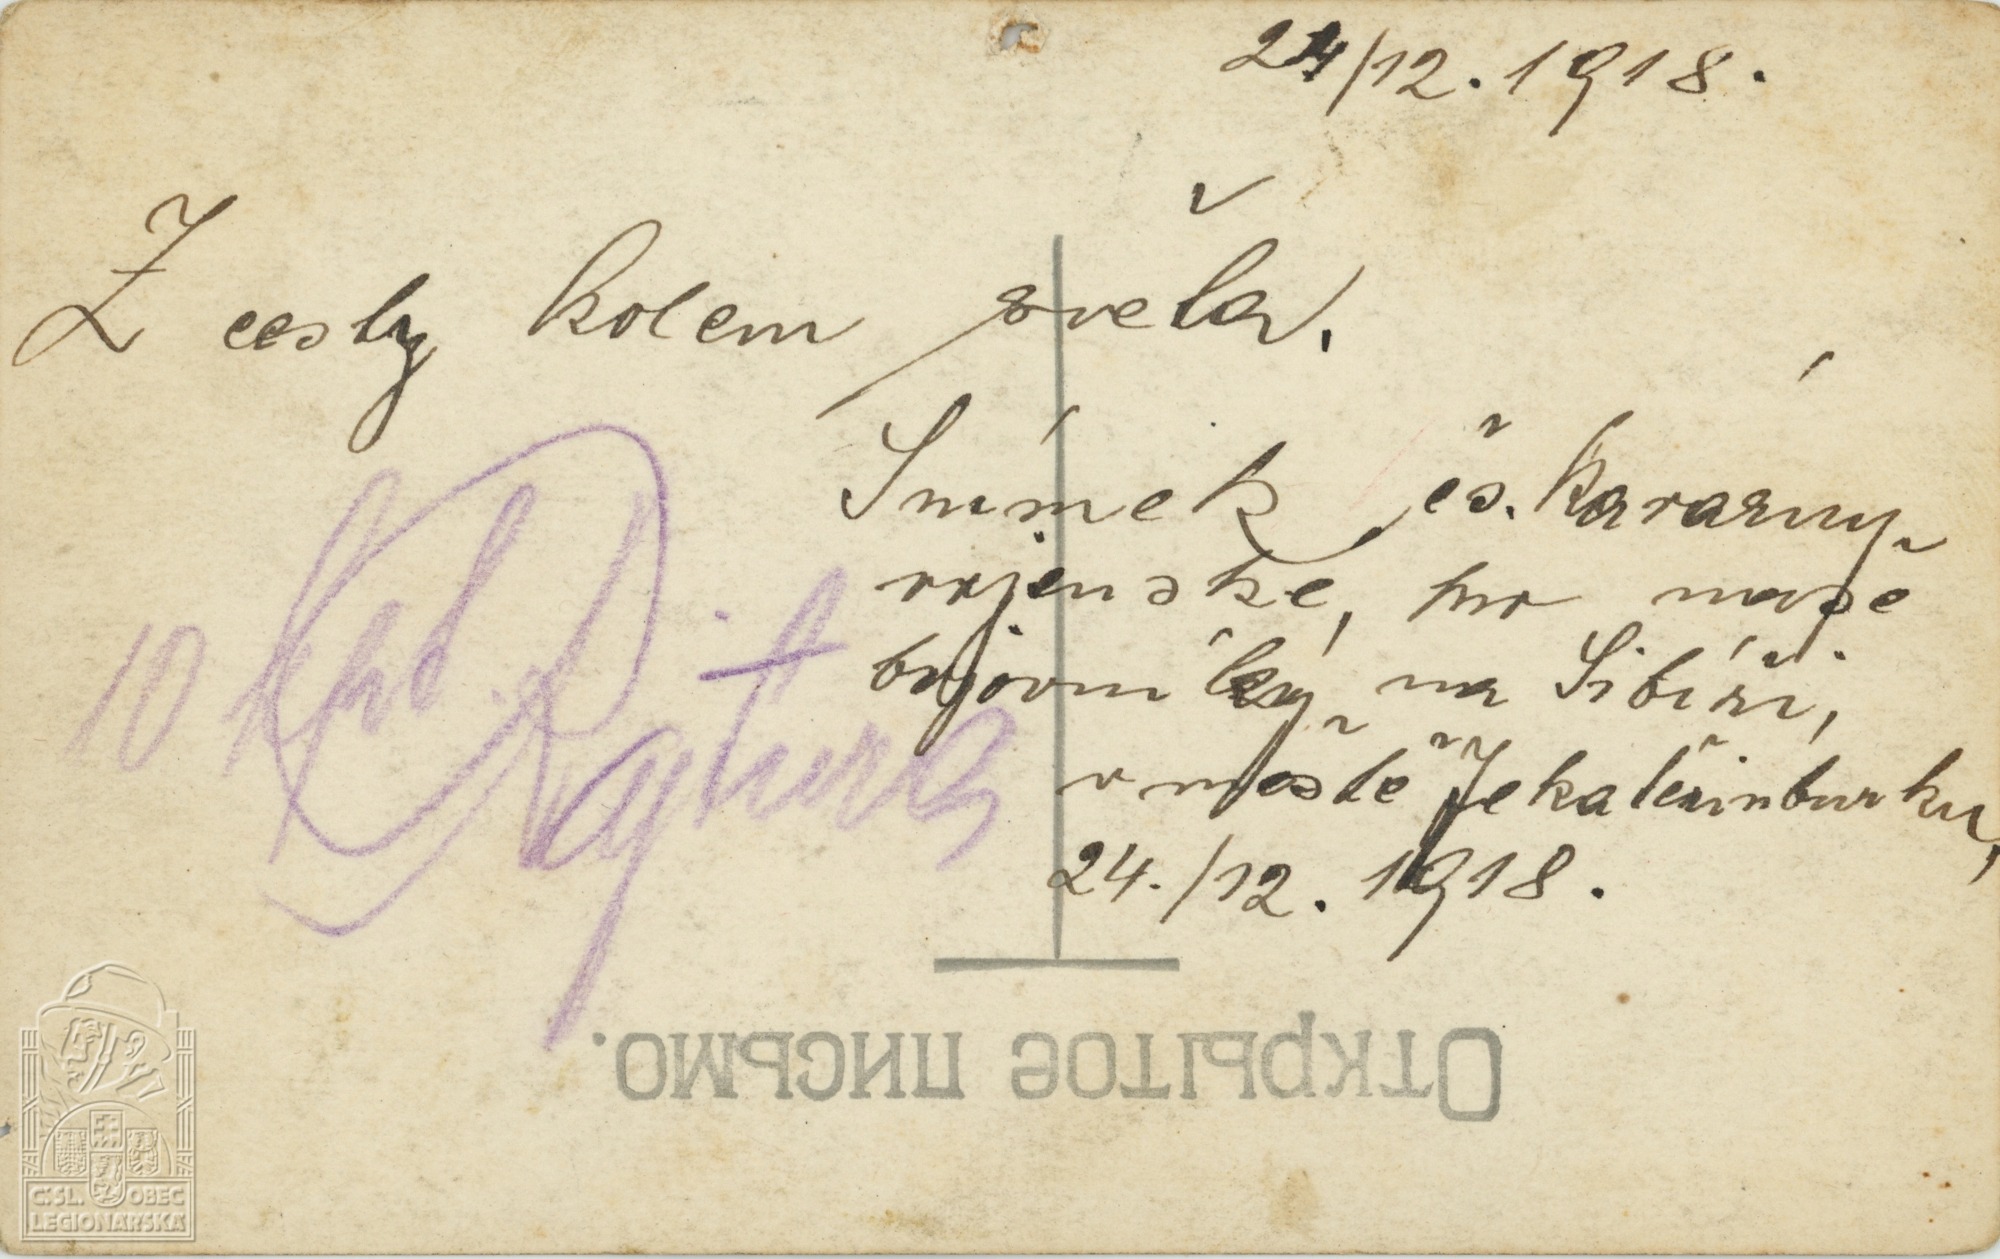 24/12.1918.
Z cesty kolem světa.
Snímek čs. kavárny
vojenské, pro naše
bojovníky na Sibíři,
v městě Jekatěrinburku,
24./12.1918.
10
Открытое письмо.
Č:SL. OBEC
LEGIONÁŘSKÁ